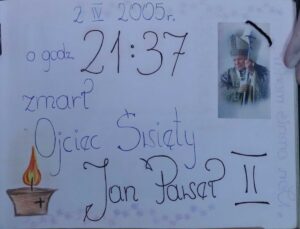 2 IV 2005r.
o godz. 21:37
zmarł
Ojciec Święty
Jan Paweł II